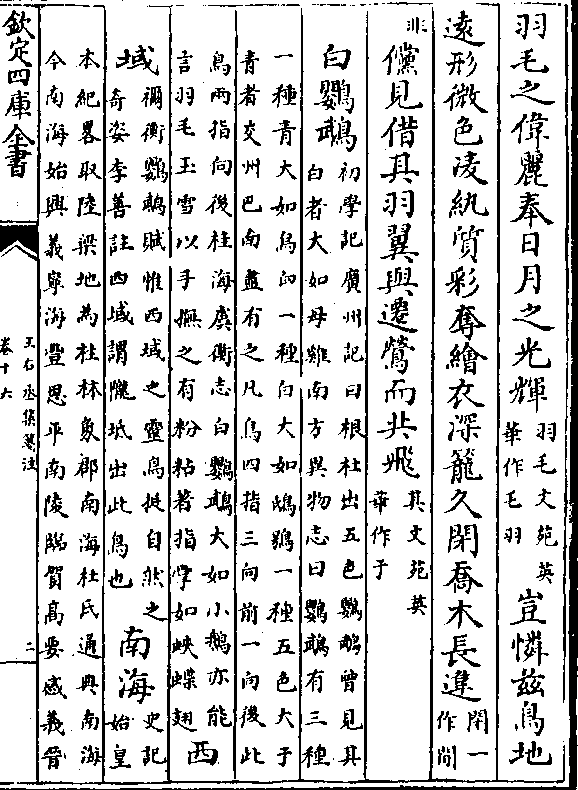 羽毛之偉麗奉日月之光輝羽毛文苑英華作毛羽豈憐茲鳥地
遠形微色凌紈質彩奪繪衣深籠久閉喬木長違閉一作閒
儻見借其羽翼與遷鶯而共飛其文苑英華作于
非
白鸚鵡初學記廣州記曰根杜出五色鸚鵡曾見其
白者大如母雞南方異物志曰鸚鵡有三種
一種青大如烏臼一種白大如鴟鴞一種五色大于
青者交州巴南盡有之凡鳥四指三向前一向後此
鳥兩指向後桂海虞衡志白鸚鵡大如小鵝亦能
言羽毛玉雪以手撫之有粉粘著指掌如蛺蝶翅西
域禰衡鸚鵡賦惟西域之靈鳥挺自然之
奇姿李善註西域謂隴坻出此鳥也南海史記
始皇
本紀畧取陸梁地為桂林象郡南海杜氏通典南海
今南海始興義寧海豐恩平南陵臨賀高要感義晉
欽定四庫全書
王右丞集箋注
卷十六
二